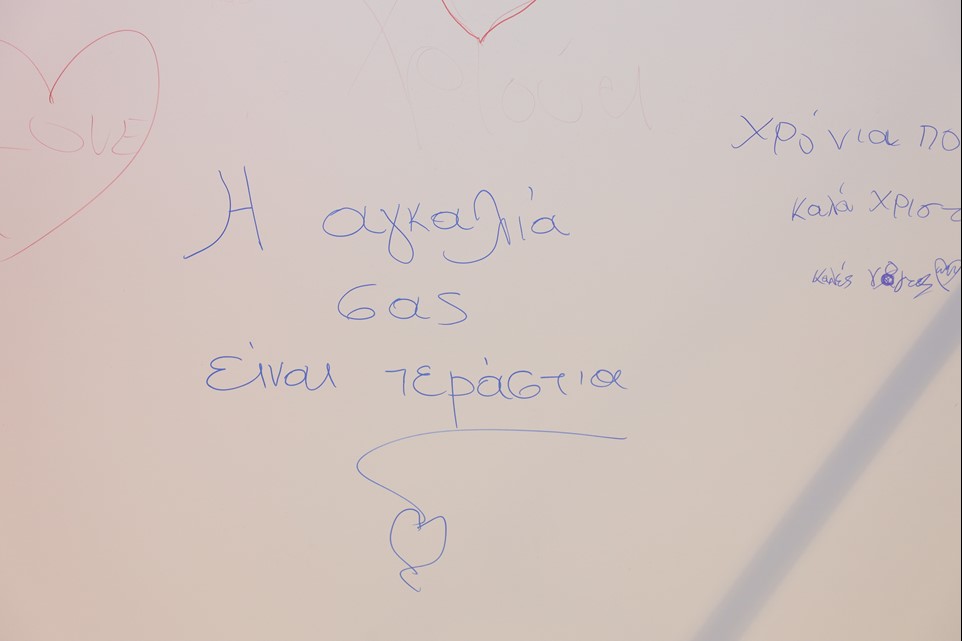 LOVE
Η αγκαλιά
σας
είναι τεράστια
Χρόνια πο
Καλά Χριστ
Καλές γ